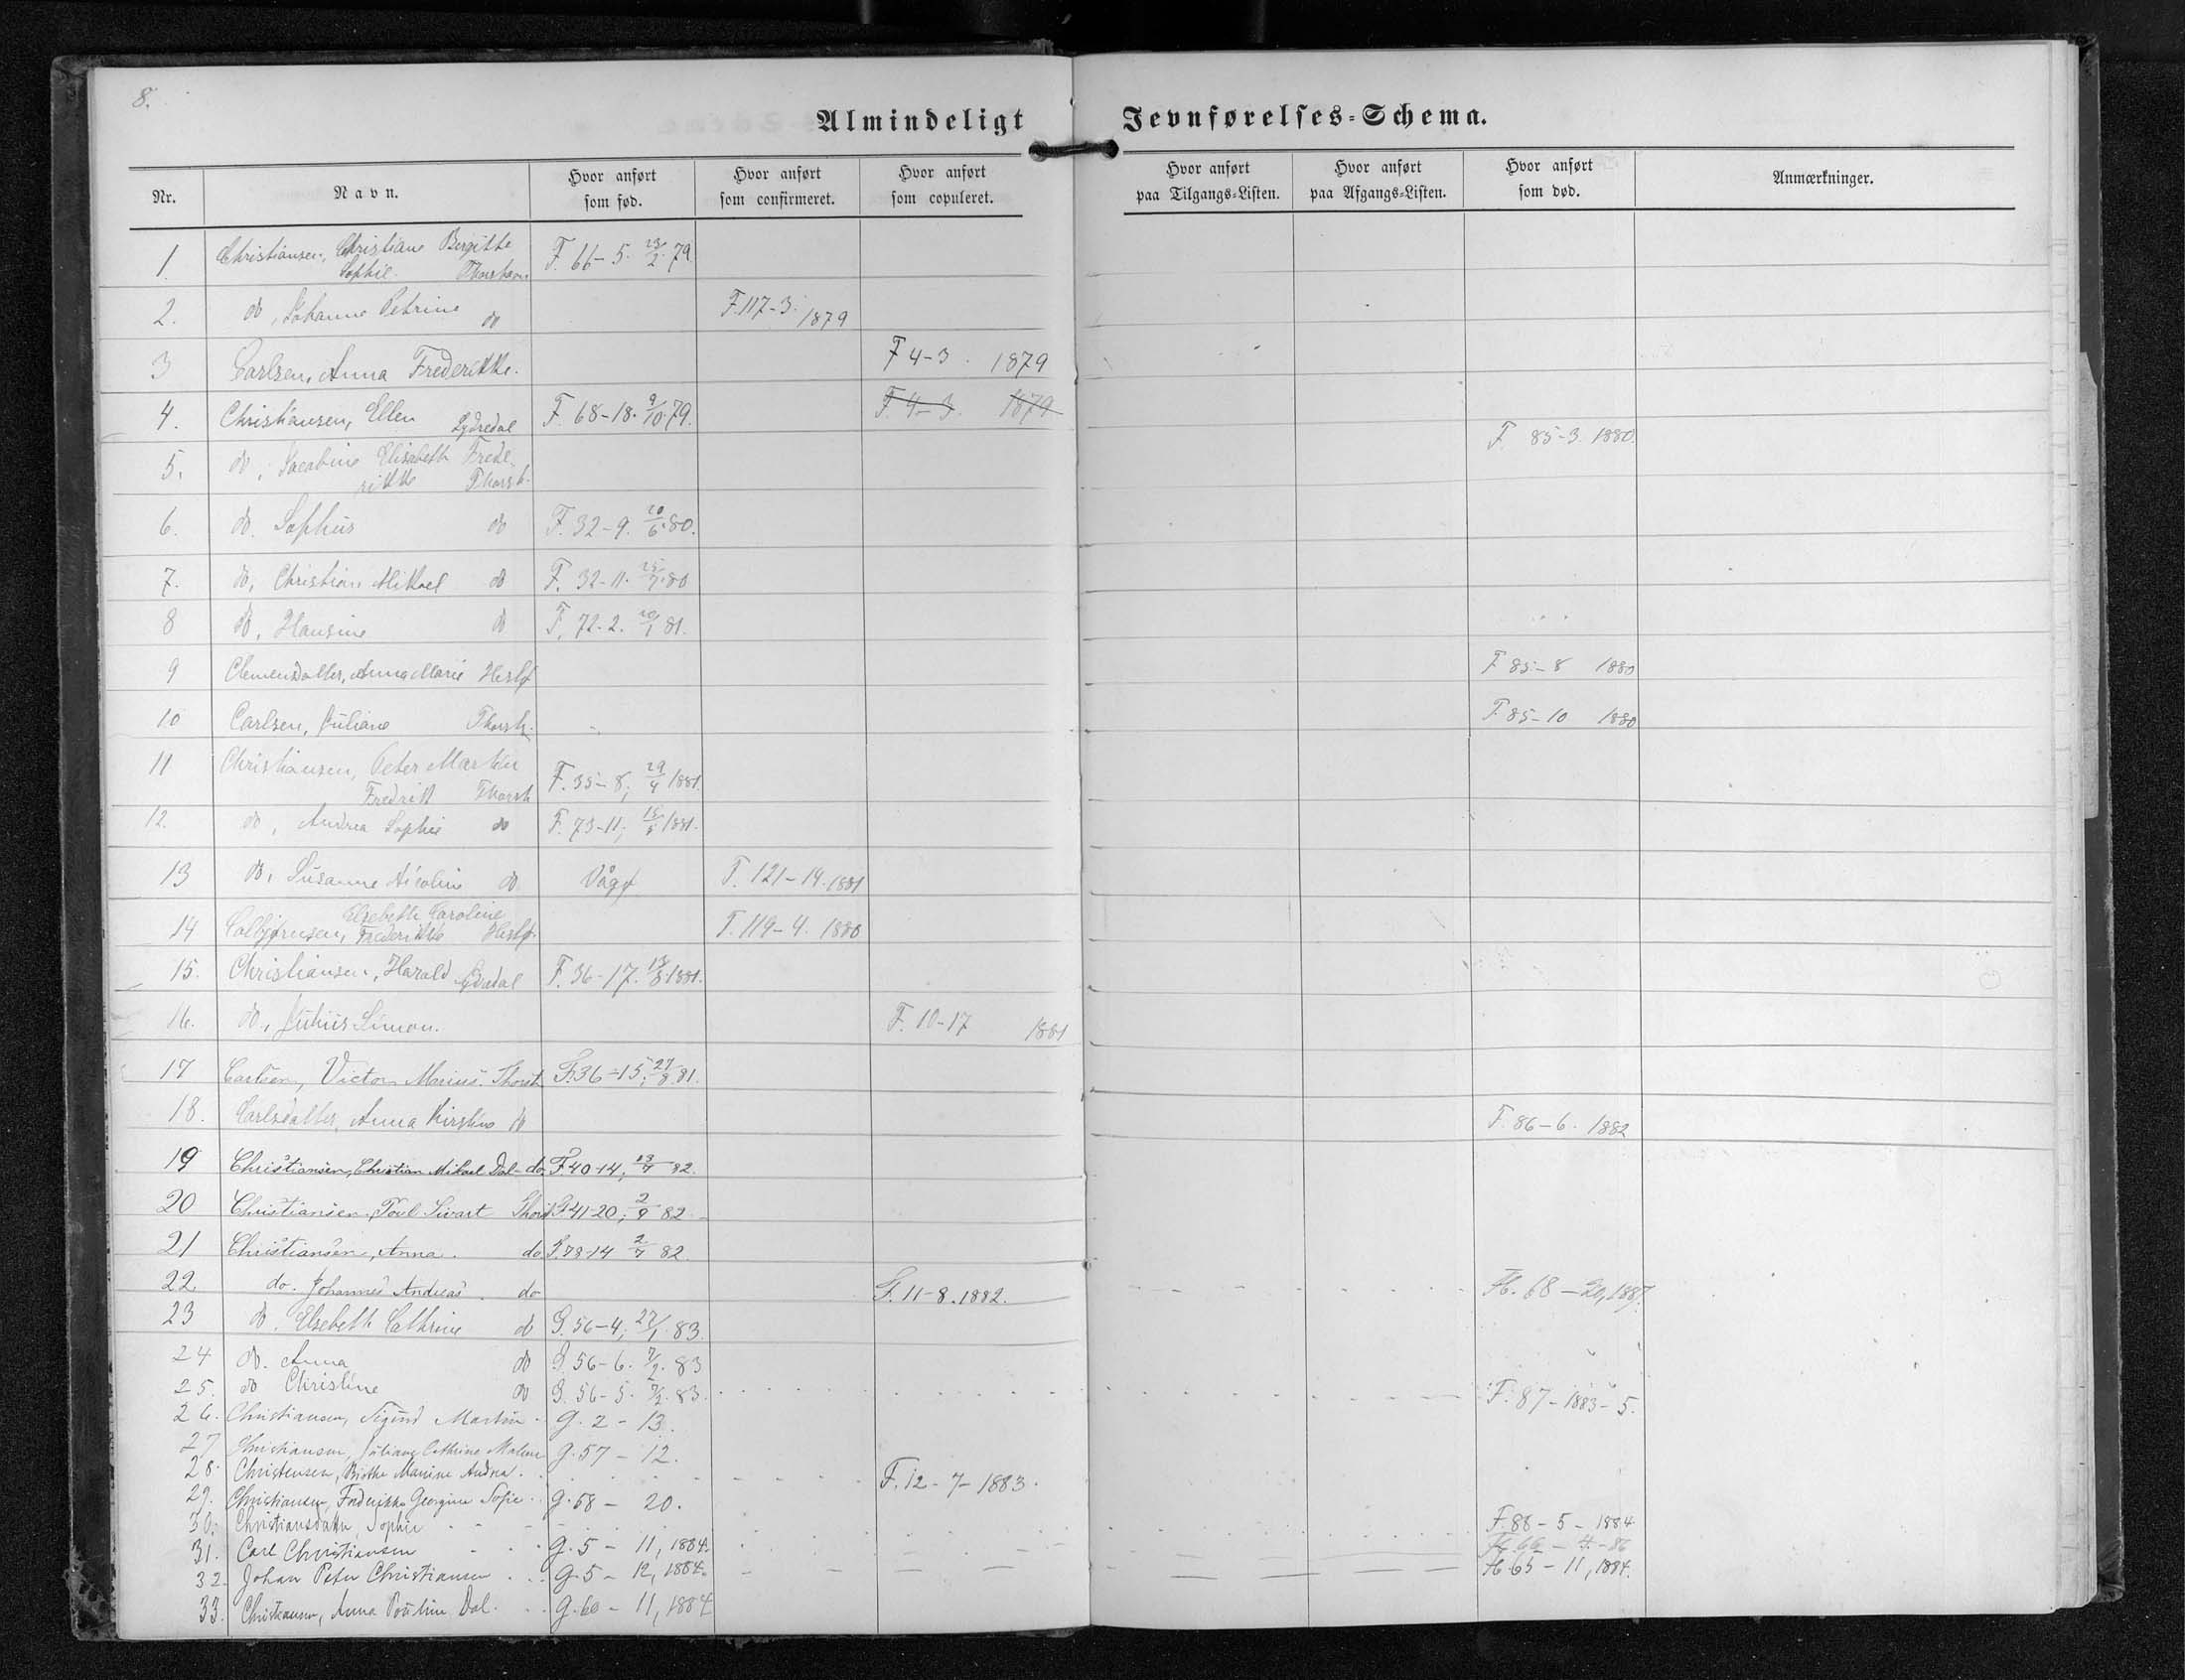 8.
Almindeligt Jevnførelses-Schema.
Nr. Navn. Hvor anført som fød. Hvor anført som confirmeret. Hvor anført som copuleret. Hvor anført paa Tilgangs-Listen. Hvor anført paa Afgangs-Listen. Hvor anført som død. Anmærkninger.
1. Christiansen, Christiane Bergitte F. 66-5. 23/2 79.
Sophie. Thorshavn.
2. do, Johanne Petrine do F. 117-3. 1879
3 Carlsen, Anna Frederikke. F 4-3. 1879
4. Christiansen, Ellen Sydredal F. 68-18. 9/10 79. F. 4-3. 1879
5. do, Jacobine Elisabeth Frede- F. 85-3. 1880.
rikke Thorsh.
6. do. Sophus do F. 32-9. 20/6 80.
7. do, Christian Mikael do F. 32-11. 25/7 80
8 do, Hansine do F. 72-2. 20/1 81.
9 Clemensdatter, Anna Marie Hestø F 85-8 1880
10 Carlsen, Juliane Thorsh. F. 85-10 1880
11 Christiansen, Peter Martin
Fredrik Thorsh F. 35-8; 29/4 1881.
12. do, Andrea Sophie do F. 73-11; 15/5 1881.
13 do, Susanne Nicoline do Vågø F. 121-14. 1881
14 Elsebeth Caroline
Colbjørnsen, Frederikke Hestø. F. 119-4. 1880
15. Christiansen, Harald Sydradal F. 36-17. 13/8 1881.
16. do, Julius Simon. F. 10-17 1881
17 Carlsen, Victor Marius. Thorsh F. 36-15; 27/8 81.
18. Carlsdatter, Anna Kirstine do F. 86-6. 1882
19 Christiansen, Christian Mikael Dal- do F. 40-14; 13/7 82.
20 Christiansen, Poul Sivart Thorsh F. 41-20; 2/9 82.
21 Christiansen, Anna. do F. 78-14 2/7 82.
22. do. Johannes Andreas. do F. 11-8. 1882. H. 68-20, 1887.
23 do. Elsebeth Cathrine do G. 56-4; 27/1 83.
24 do. Anna do G. 56-6. 7/2. 83
25. do Christine do G. 56-5. 7/2. 83. F. 87-1883-5.
26. Christiansen, Sigurd Martin. G. 2-13.
27 Christiansen, Juliane Cathrine Malene G. 57-12.
28. Christensen, Birthe Marine Andrea. F. 12-7-1883.
29. Christiansen, Frederikke Georgine Sofie. G. 58-20.
30. Christiansdatter, Sophie F. 88-5-1884
31. Carl Christiansen G. 5-11, 1884. H. 66-4.-86
32. Johan Peter Christiansen G. 5-12, 1884. H. 65-11, 1884.
33. Christiansen, Anna Pouline Dal. G. 60-11, 1884